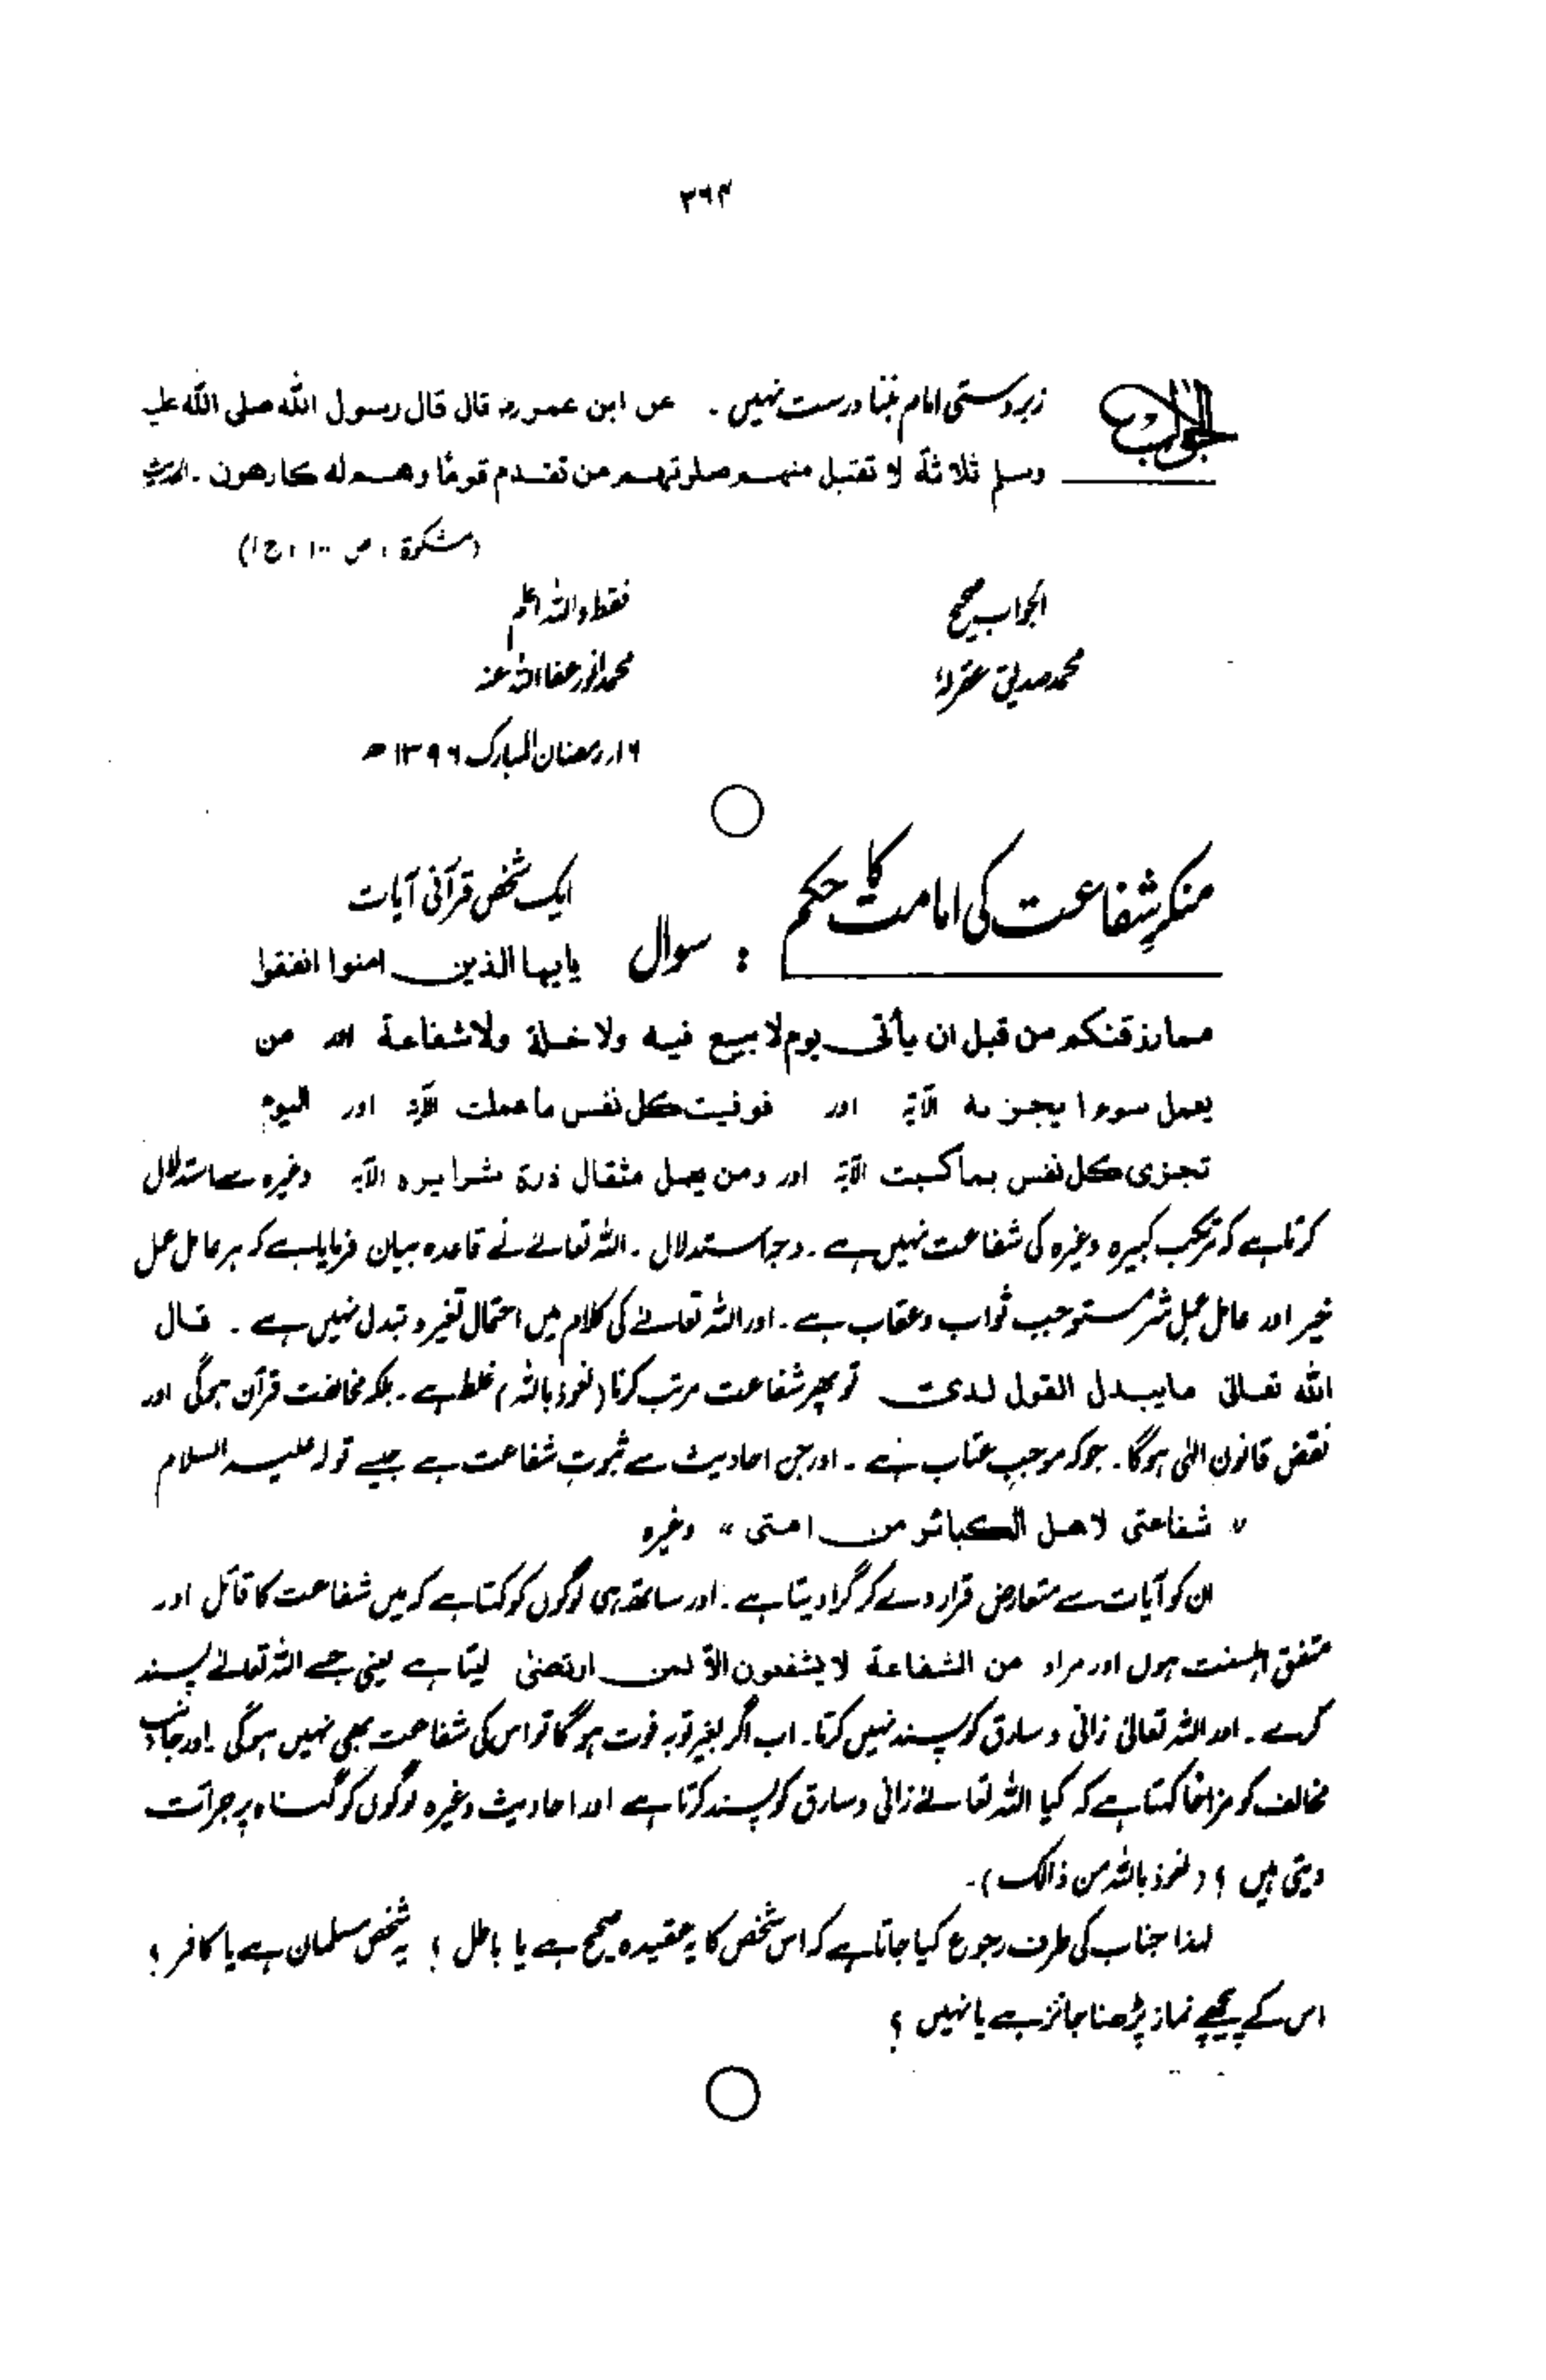 ۳۶۴
الجواب
زبردستی امام بننا درست نہیں ۔ عن ابن عمر رض قال قال رسول الله صلى الله عليه
وسلم ثلاثة لا تقبل منهم صلوتهم من تقدم قومًا وهم له كارهون ۔ الحدیث
(مشکوٰۃ ، ص ۱۰۰ ، ج ۱)
الجواب صحیح
فقط واللہ اعلم
محمد صدیق غفرلہٗ
محمد انور عفا اللہ عنہ
۱۶ ررمضان المبارک ۱۳۹۶ھ
منکرِ شفاعت کی امامت کا حکم
ایک شخص قرآنی آیات
: سوال یایها الذین امنوا انفقوا
مما رزقنکم من قبل ان یأتی یوم لا بیع فیه ولا خلة ولا شفاعة اور من
یعمل سوءا یجز به الآیة اور فوفیت کل نفس ما عملت الآیة اور الیوم
تجزی کل نفس بما کسبت الآیة اور ومن یعمل مثقال ذرة شرا یره الآیة وغیرہ سے استدلال
کرتا ہے کہ مرتکب کبیرہ وغیرہ کی شفاعت نہیں ہے ۔ وجہ استدلال ۔ اللہ تعالےٰ نے قاعدہ بیان فرمایا ہے کہ ہر عامل عمل
خیر اور عامل عمل شر مستوجب ثواب و عقاب ہے ۔ اور اللہ تعالےٰ کی کلام میں احتمال تغیر و تبدل نہیں ہے ۔ قال
الله تعالىٰ ما یبدل القول لدی تو پھر شفاعت مرتب کرنا (نعوذ باللہ) غلط ہے ۔ بلکہ مخالفت قرآن ہوگی اور
نقض قانون الٰہی ہوگا ۔ جو کہ موجبِ عتاب ہے ۔ اور جن احادیث سے ثبوتِ شفاعت ہے جیسے قولہ علیہ السلام
" شفاعتی لاهل الکبائر من امتی " وغیرہ
ان کو آیات سے متعارض قرار دے کر گرا دیتا ہے ۔ اور ساتھ ہی لوگوں کو کہتا ہے کہ میں شفاعت کا قائل اور
متفق اہلسنت ہوں اور مراد من الشفاعة لا یشفعون الا لمن ارتضیٰ لیتا ہے یعنی جسے اللہ تعالےٰ پسند
کرے ۔ اور اللہ تعالیٰ زانی و سارق کو پسند نہیں کرتا ۔ اب اگر بغیر توبہ فوت ہوگا تو اس کی شفاعت بھی نہیں ہوگی ۔ اور جانب
مخالف کو مزاحًا کہتا ہے کہ کیا اللہ تعالےٰ زانی و سارق کو پسند کرتا ہے اور احادیث وغیرہ لوگوں کو گناہ پر جرأت
دیتی ہیں ؟ (نعوذ باللہ من ذالک) ۔
لہذا جناب کی طرف رجوع کیا جاتا ہے کہ اس شخص کا یہ عقیدہ صحیح ہے یا باطل ؟ یہ شخص مسلمان ہے یا کافر ؟
اس کے پیچھے نماز پڑھنا جائز ہے یا نہیں ؟